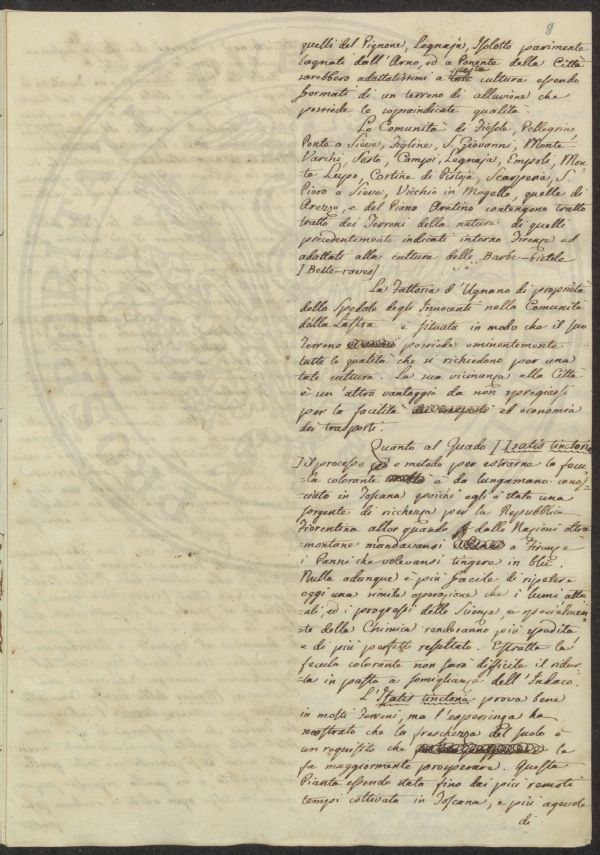 8
quelli del Pignone, Legnaja, Isolotto parimente
bagnati dall'Arno, ed a Ponente della Città
sarebbero adattatissimi a questa cultura essendo
formati di un terreno di alluvione che
possiede le sopraindicate qualità.
Le Comunità di Fiesole, Pellegrino,
Ponte a Sieve, Figline, S. Giovanni, Monte
Varchi, Sesto, Campi, Legnaja, Empoli, Mon-
te Lupo, Cortine di Pistoja, Scarperia, S.
Piero a Sieve, Vicchio in Mugello, quelle di
Arezzo, e del Piano Aretino contengono tratto
tratto dei Terreni della natura di quelli
precedentemente indicati intorno Firenze ed
adattati alla cultura delle Barbe-bietole
[Bette-raves]
La Fattoria d'Ugnano di proprietà
dello Spedale degli Innocenti nella Comunità
della Lastra è situata in modo che il suo
Terreno possiede eminentemente
tutte le qualità che si richiedono per una
tale cultura. La sua vicinanza alla Città
è un'altro vantaggio da non spregiarsi
per la facilità ed economia
dei trasporti.
Quanto al Guado [Isatis tinctoria
] il processo e metodo per estrarne la fecu
-la colorante è da lungamano cono-
sciuto in Toscana poichè egli è stato una
sorgente di ricchezza per la Repubblica
Fiorentina allor quando dalle Nazioni oltra
montane mandavansi a Firenze
i Panni che volevansi tingere in bleù.
Nulla adunque è più facile di ripetere
oggi una simile operazione che i lumi attu
-ali, ed i progressi delle Scienze, e specialmen-
te della Chimica renderanno più spedita
e di più perfetto resultato. Estratta la
fecula colorante non sarà difficile il ridur-
la in pasta a somiglianza dell'Indaco.
L'Isatis tinctoria prova bene
in molti Terreni, ma l'esperienza ha
mostrato che la freschezza del suolo è
un requisito che la
fa maggiormente prosperare. Questa
Pianta essendo stata fino dai più remoti
tempi coltivata in Toscana, è più agevole
di